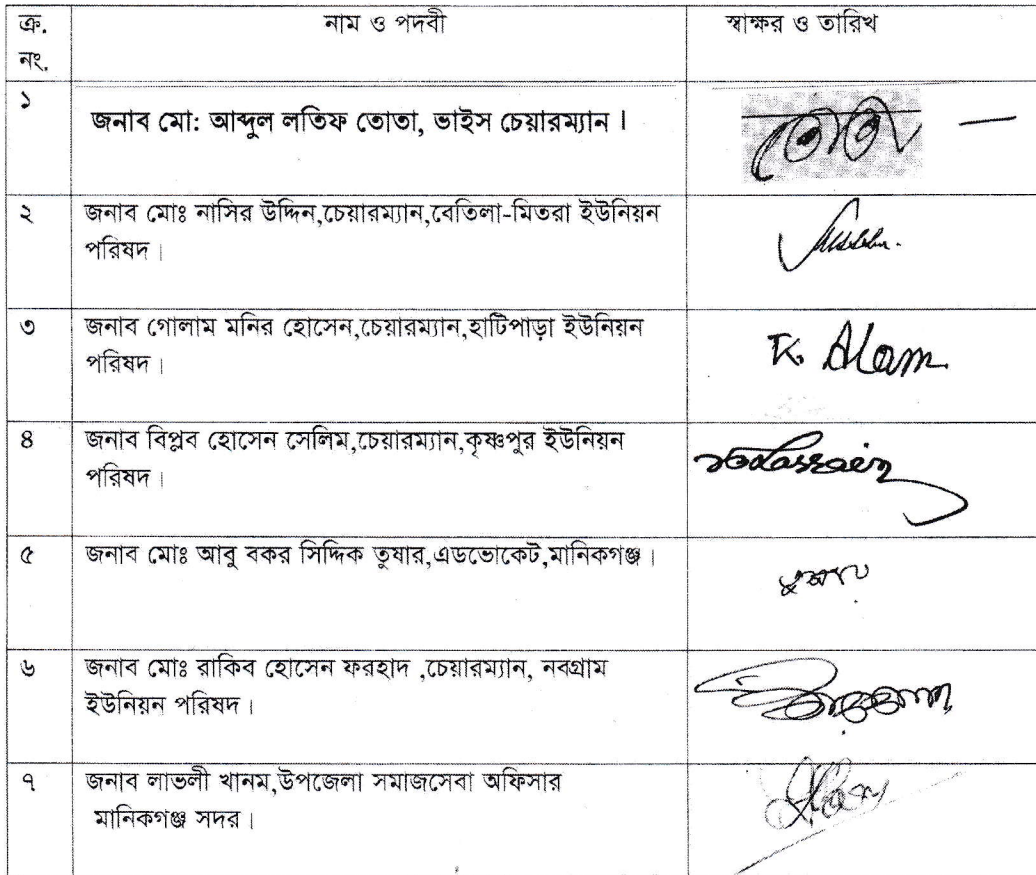 ক্র. নাম ও পদবী স্বাক্ষর ও তারিখ
নং.
১ জনাব মো: আব্দুল লতিফ তোতা, ভাইস চেয়ারম্যান । তোতা
২ জনাব মোঃ নাসির উদ্দিন,চেয়ারম্যান,বেতিলা-মিতরা ইউনিয়ন
পরিষদ।
৩ জনাব গোলাম মনির হোসেন,চেয়ারম্যান,হাটিপাড়া ইউনিয়ন
পরিষদ। K. Alam
৪ জনাব বিপ্লব হোসেন সেলিম,চেয়ারম্যান,কৃষ্ণপুর ইউনিয়ন
পরিষদ।
৫ জনাব মোঃ আবু বকর সিদ্দিক তুষার,এডভোকেট,মানিকগঞ্জ। তুষার
৬ জনাব মোঃ রাকিব হোসেন ফরহাদ ,চেয়ারম্যান, নবগ্রাম
ইউনিয়ন পরিষদ।
৭ জনাব লাভলী খানম,উপজেলা সমাজসেবা অফিসার
মানিকগঞ্জ সদর।